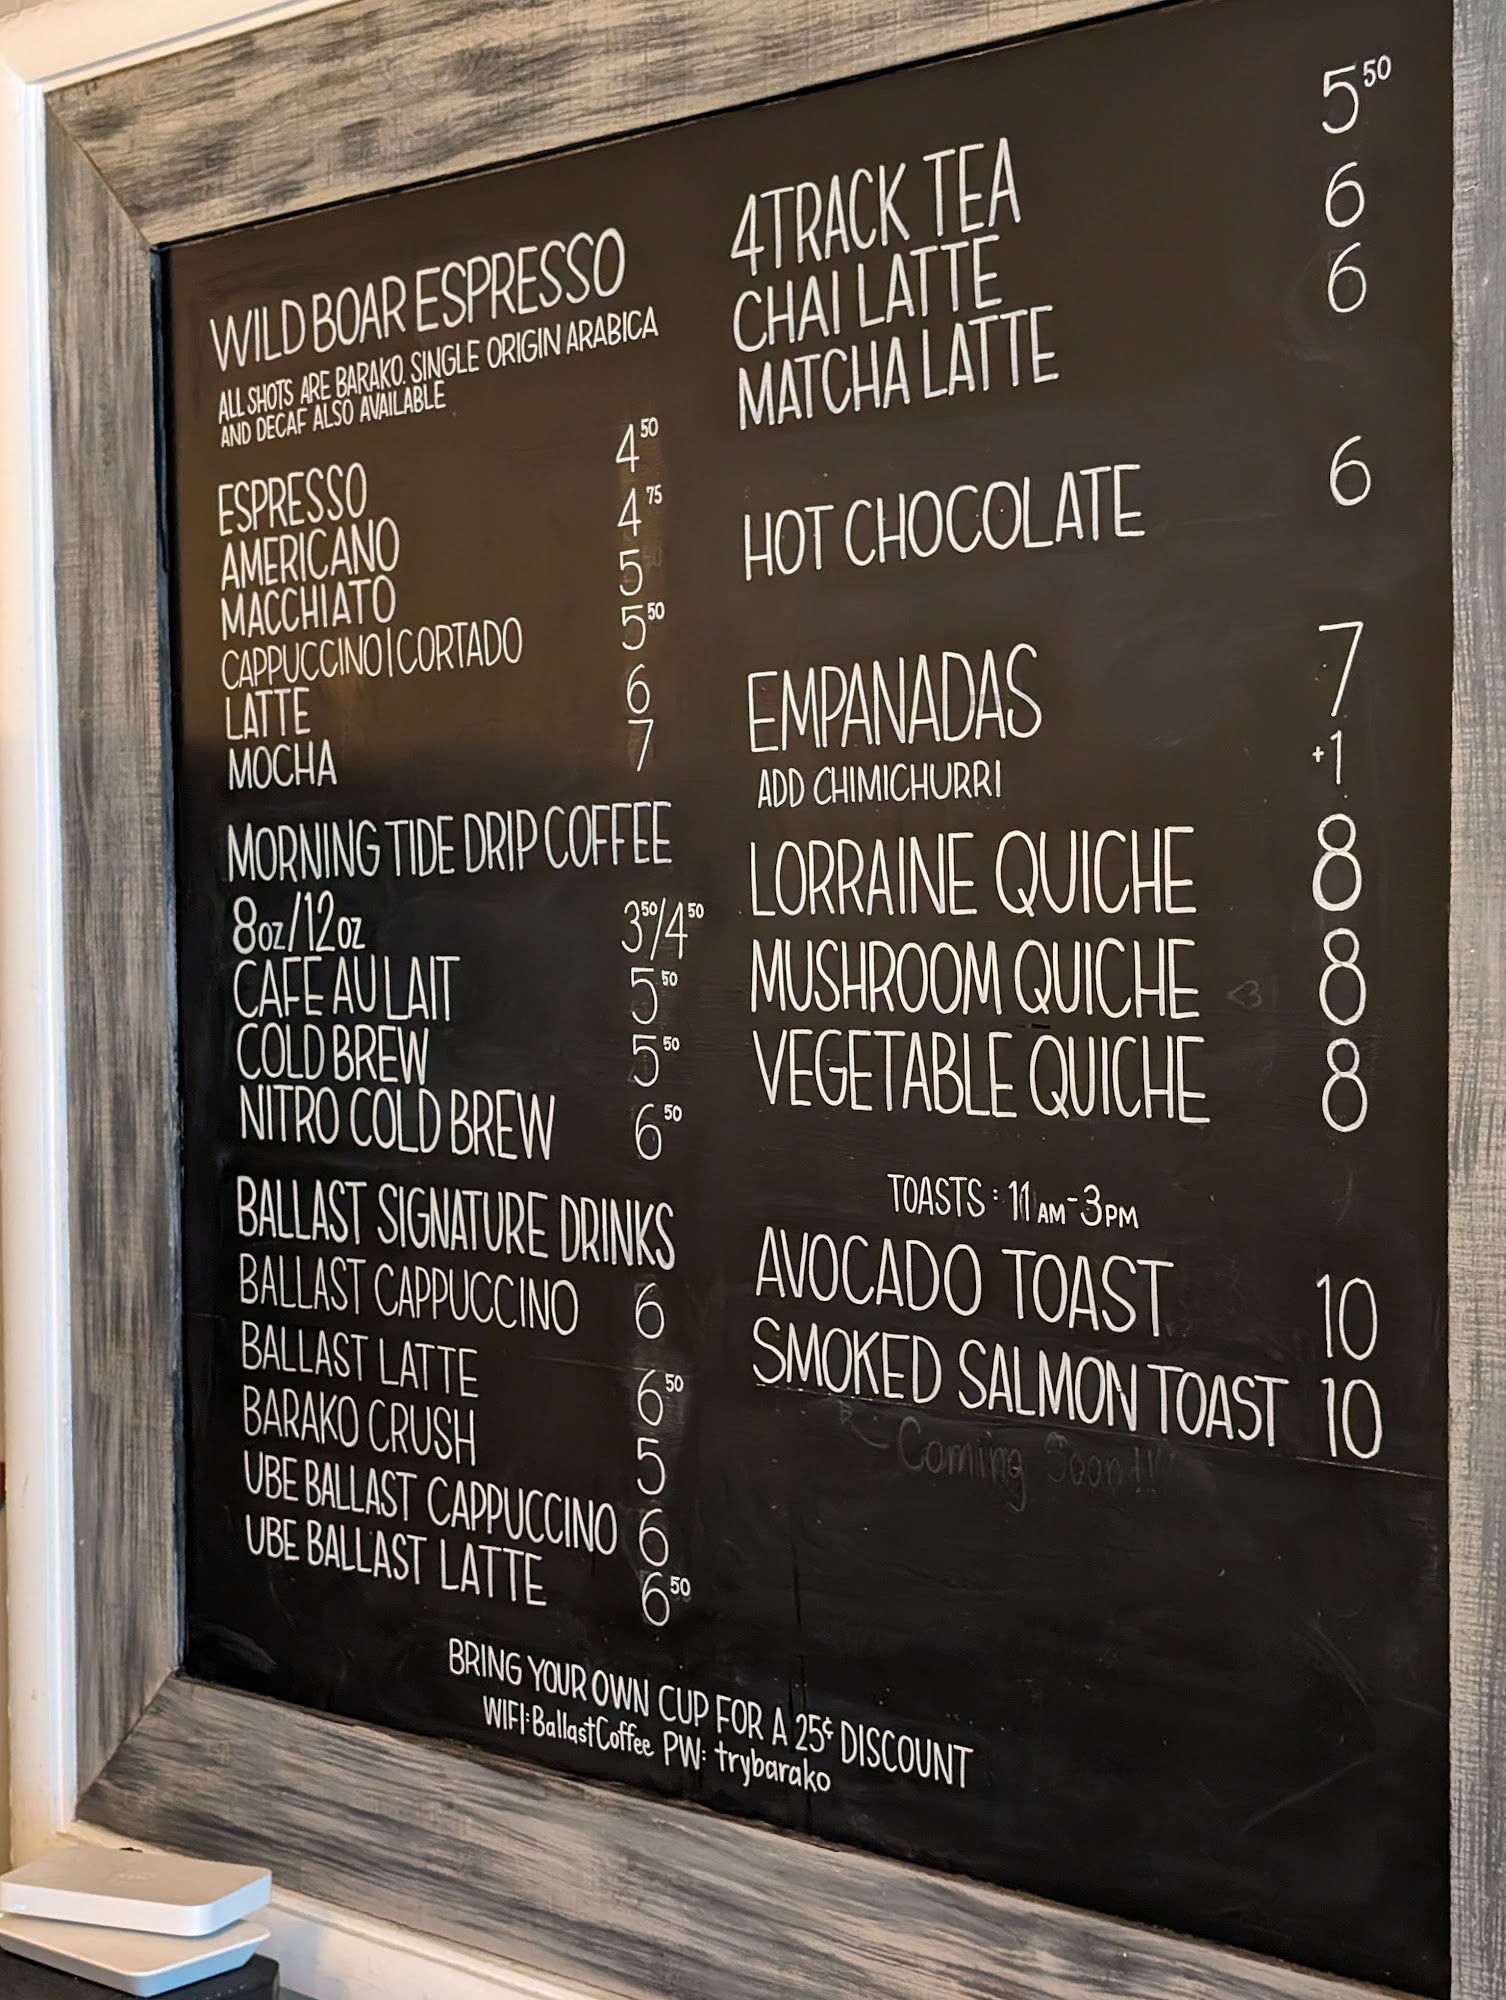 WILD BOAR ESPRESSO
ALL SHOTS ARE BARAKO. SINGLE ORIGIN ARABICA
AND DECAF ALSO AVAILABLE
ESPRESSO 4 50
AMERICANO 4 75
MACCHIATO 5
CAPPUCCINO|CORTADO 5 50
LATTE 6
MOCHA 7
MORNING TIDE DRIP COFFEE
8oz/12oz 3 50/4 50
CAFE AU LAIT 5 50
COLD BREW 5 50
NITRO COLD BREW 6 50
BALLAST SIGNATURE DRINKS
BALLAST CAPPUCCINO 6
BALLAST LATTE 6 50
BARAKO CRUSH 5
UBE BALLAST CAPPUCCINO 6
UBE BALLAST LATTE 6 50
4TRACK TEA 5 50
CHAI LATTE 6
MATCHA LATTE 6
HOT CHOCOLATE 6
EMPANADAS 7
ADD CHIMICHURRI +1
LORRAINE QUICHE 8
MUSHROOM QUICHE <3 8
VEGETABLE QUICHE 8
TOASTS: 11AM-3PM
AVOCADO TOAST 10
SMOKED SALMON TOAST 10
Coming Soon!!!
BRING YOUR OWN CUP FOR A 25¢ DISCOUNT
WIFI:BallastCoffee PW: trybarako